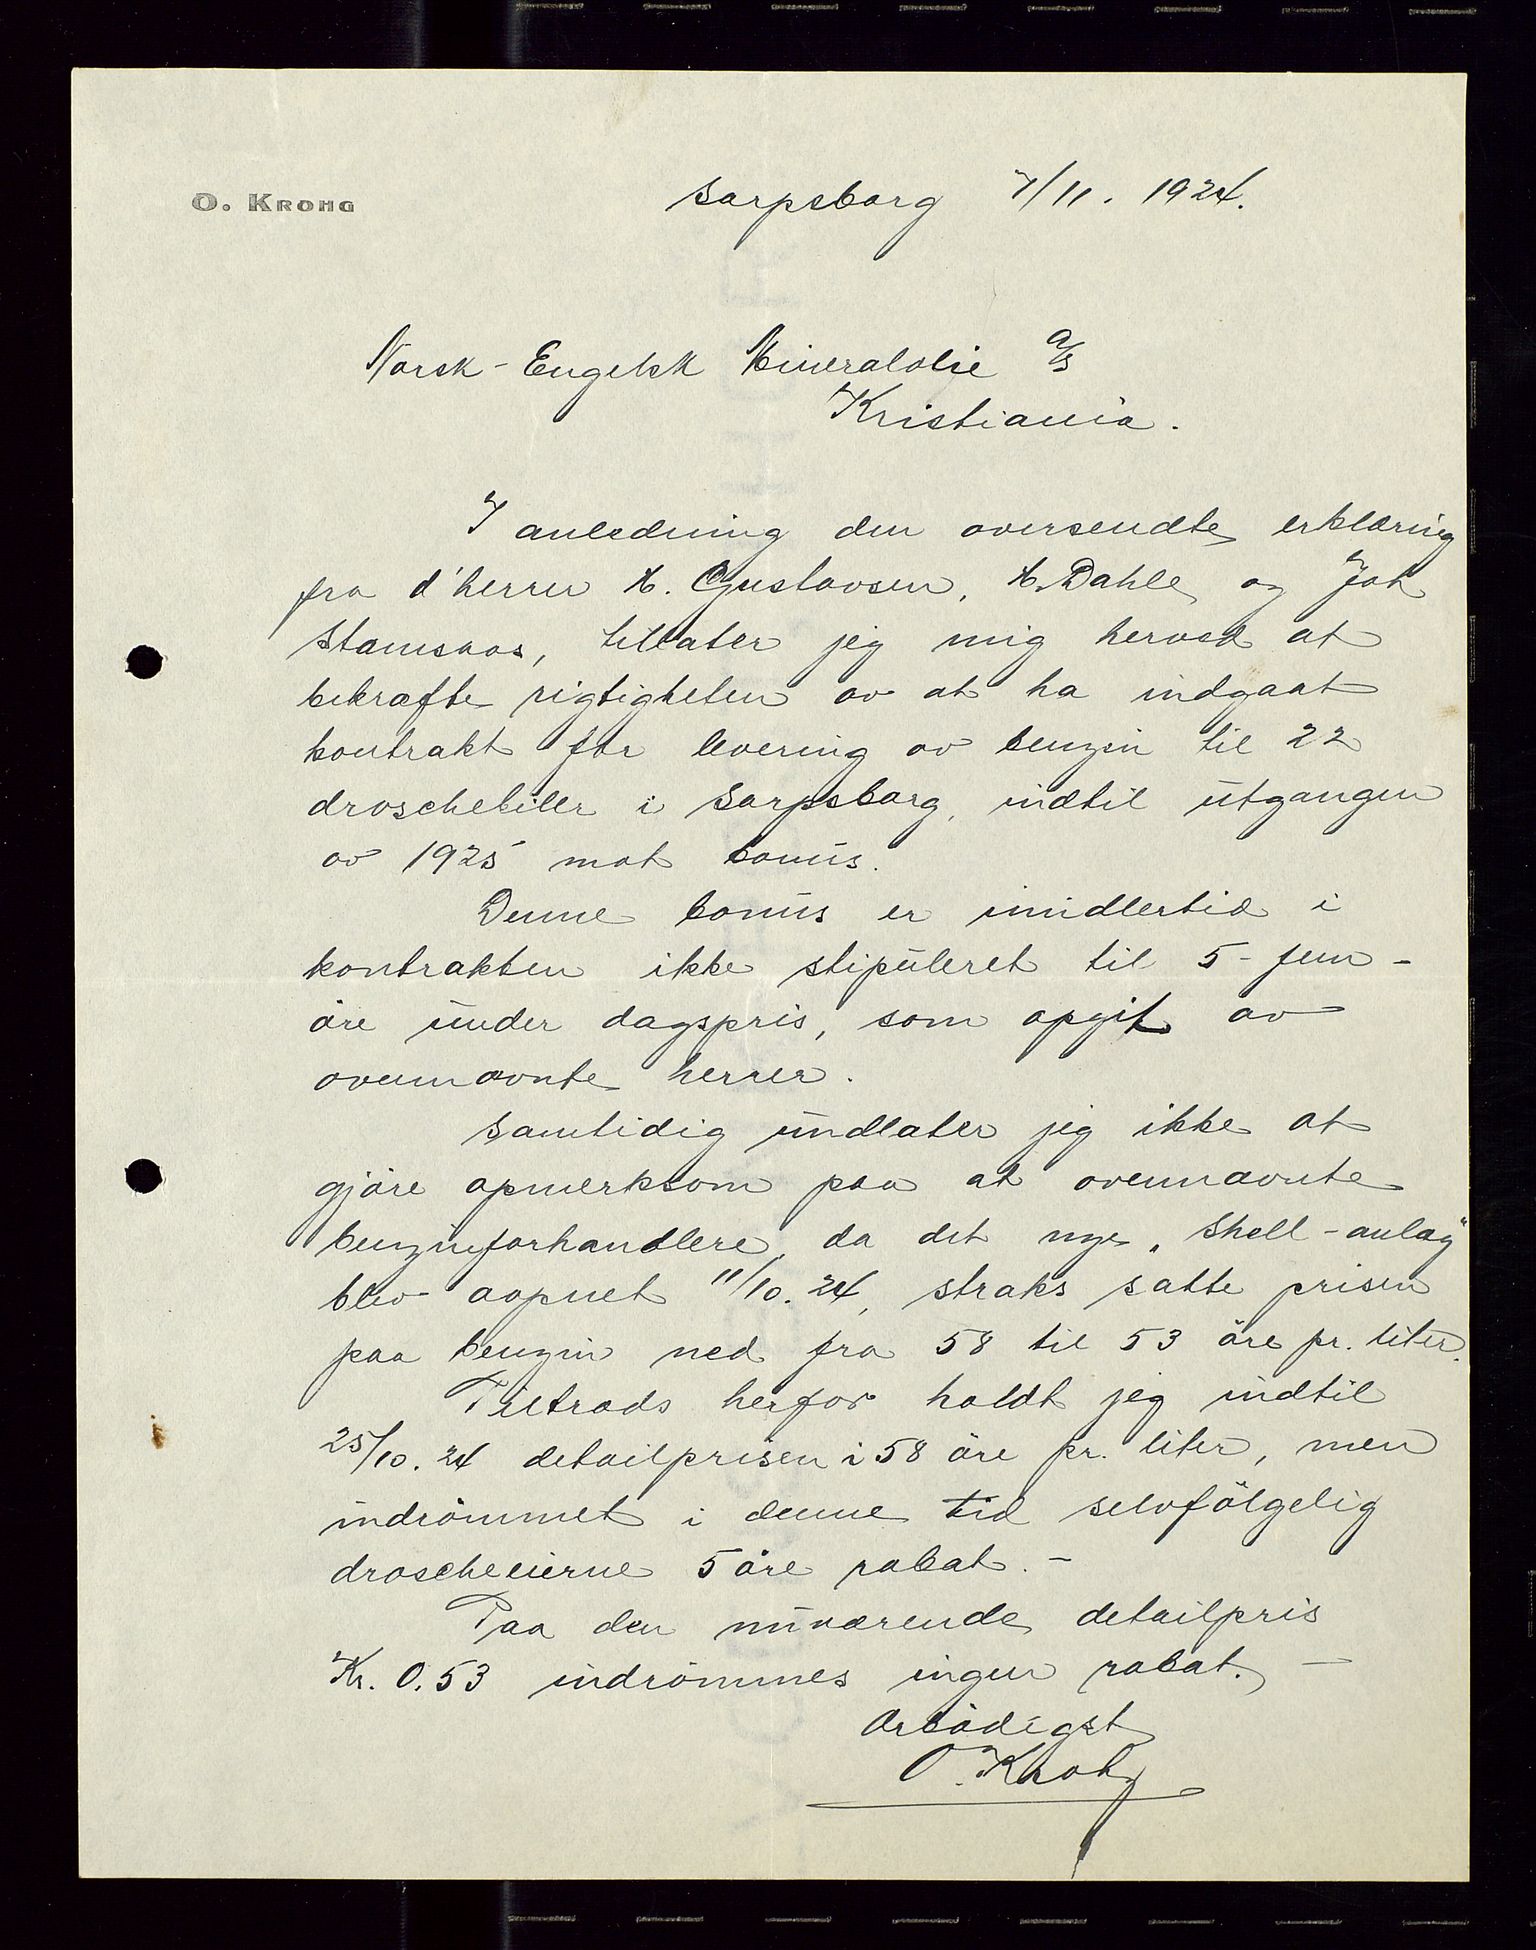 O. Krohg
Sarpsborg 7/11. 1924.
Norsk-Engelsk Mineralolie A/S
Kristiania.
I anledning den oversendte erklæring
fra d'herrer H. Gustavsen, H. Dahle og Joh
Stamsaas, tillater jeg mig herved at
bekræfte rigtigheten av at ha indgaat
kontrakt for levering av benzin til 22
droschebiler i Sarpsborg, indtil utgangen
av 1925 mot bonus.
Denne bonus er imidlertid i
kontrakten ikke stipuleret til 5 - fem -
öre under dagspris, som opgit av
ovennævnte herrer.
Samtidig undlater jeg ikke at
gjöre opmerksom paa at ovennævnte
benzinforhandlere, da det nye „Shell-anlæg"
blev aapnet 11/10. 24, straks satte prisen
paa benzin ned fra 58 til 53 öre pr. liter.
Tiltrods herfor holdt jeg indtil
25/10. 24 detailprisen i 58 öre pr. liter, men
indrömmet i denne tid selvfölgelig
droscheeierne 5 öre rabat. -
Paa den nuværende detailpris
Kr. 0.53 indrömmes ingen rabat. -
Ærbödigst
O. Krohg